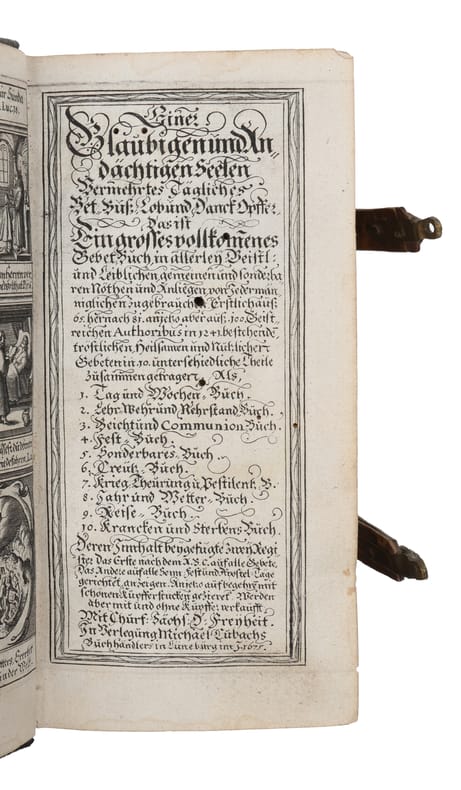 Eines
Glaubigen und An-
dächtigen Seelen
Vermehrtes Tägliches
Bet, Buß, Lob und Danck Opffer,
Das ist
Ein grosses vollkomenes
Gebet Buch in allerley Geistl.
und Leiblichen gemeinen und sonderba
ren Nöthen und Anliegen, von Jederman
niglichen zugebrauchen Erstlich auß
65. hernach 81. anjetzo aber auß 100. Geist
reichen Authoribus in 1241. bestehende,
tröstlichen, Heilsamen und Nützlichen
Gebeten in 10. unterschiedliche Theile
zusammen getragen, Als,
1. Tag und Wochen Buch.
2. Lehr Wehr und Nehrstand Buch.
3. Beicht und Communion Buch.
4. Fest Buch.
5. Sonderbares Buch.
6. Creutz Buch.
7. Krieg Theürung ü Pestilentz B.
8. Jahr und Wetter Buch.
9. Reise Buch.
10. Krancken und Sterbens Buch.
Deren Innhalt beygefügte zween Regi
ster Das Erste nach dem A.B.C. auf alle Gebete,
Das Andere auf alle Sonn Fest und Apostel Tage
gerichtet, anzeigen. Anjetzo auf begehren mit
schönen Kupfferstucken gezieret. Werden
aber mit und ohne Kupffer verkaufft
Mit Churf. Sächs. G. Freyheit.
In Verlegung Michael Cubachs
Buchhändlers in Lüneburg im J. 1675.